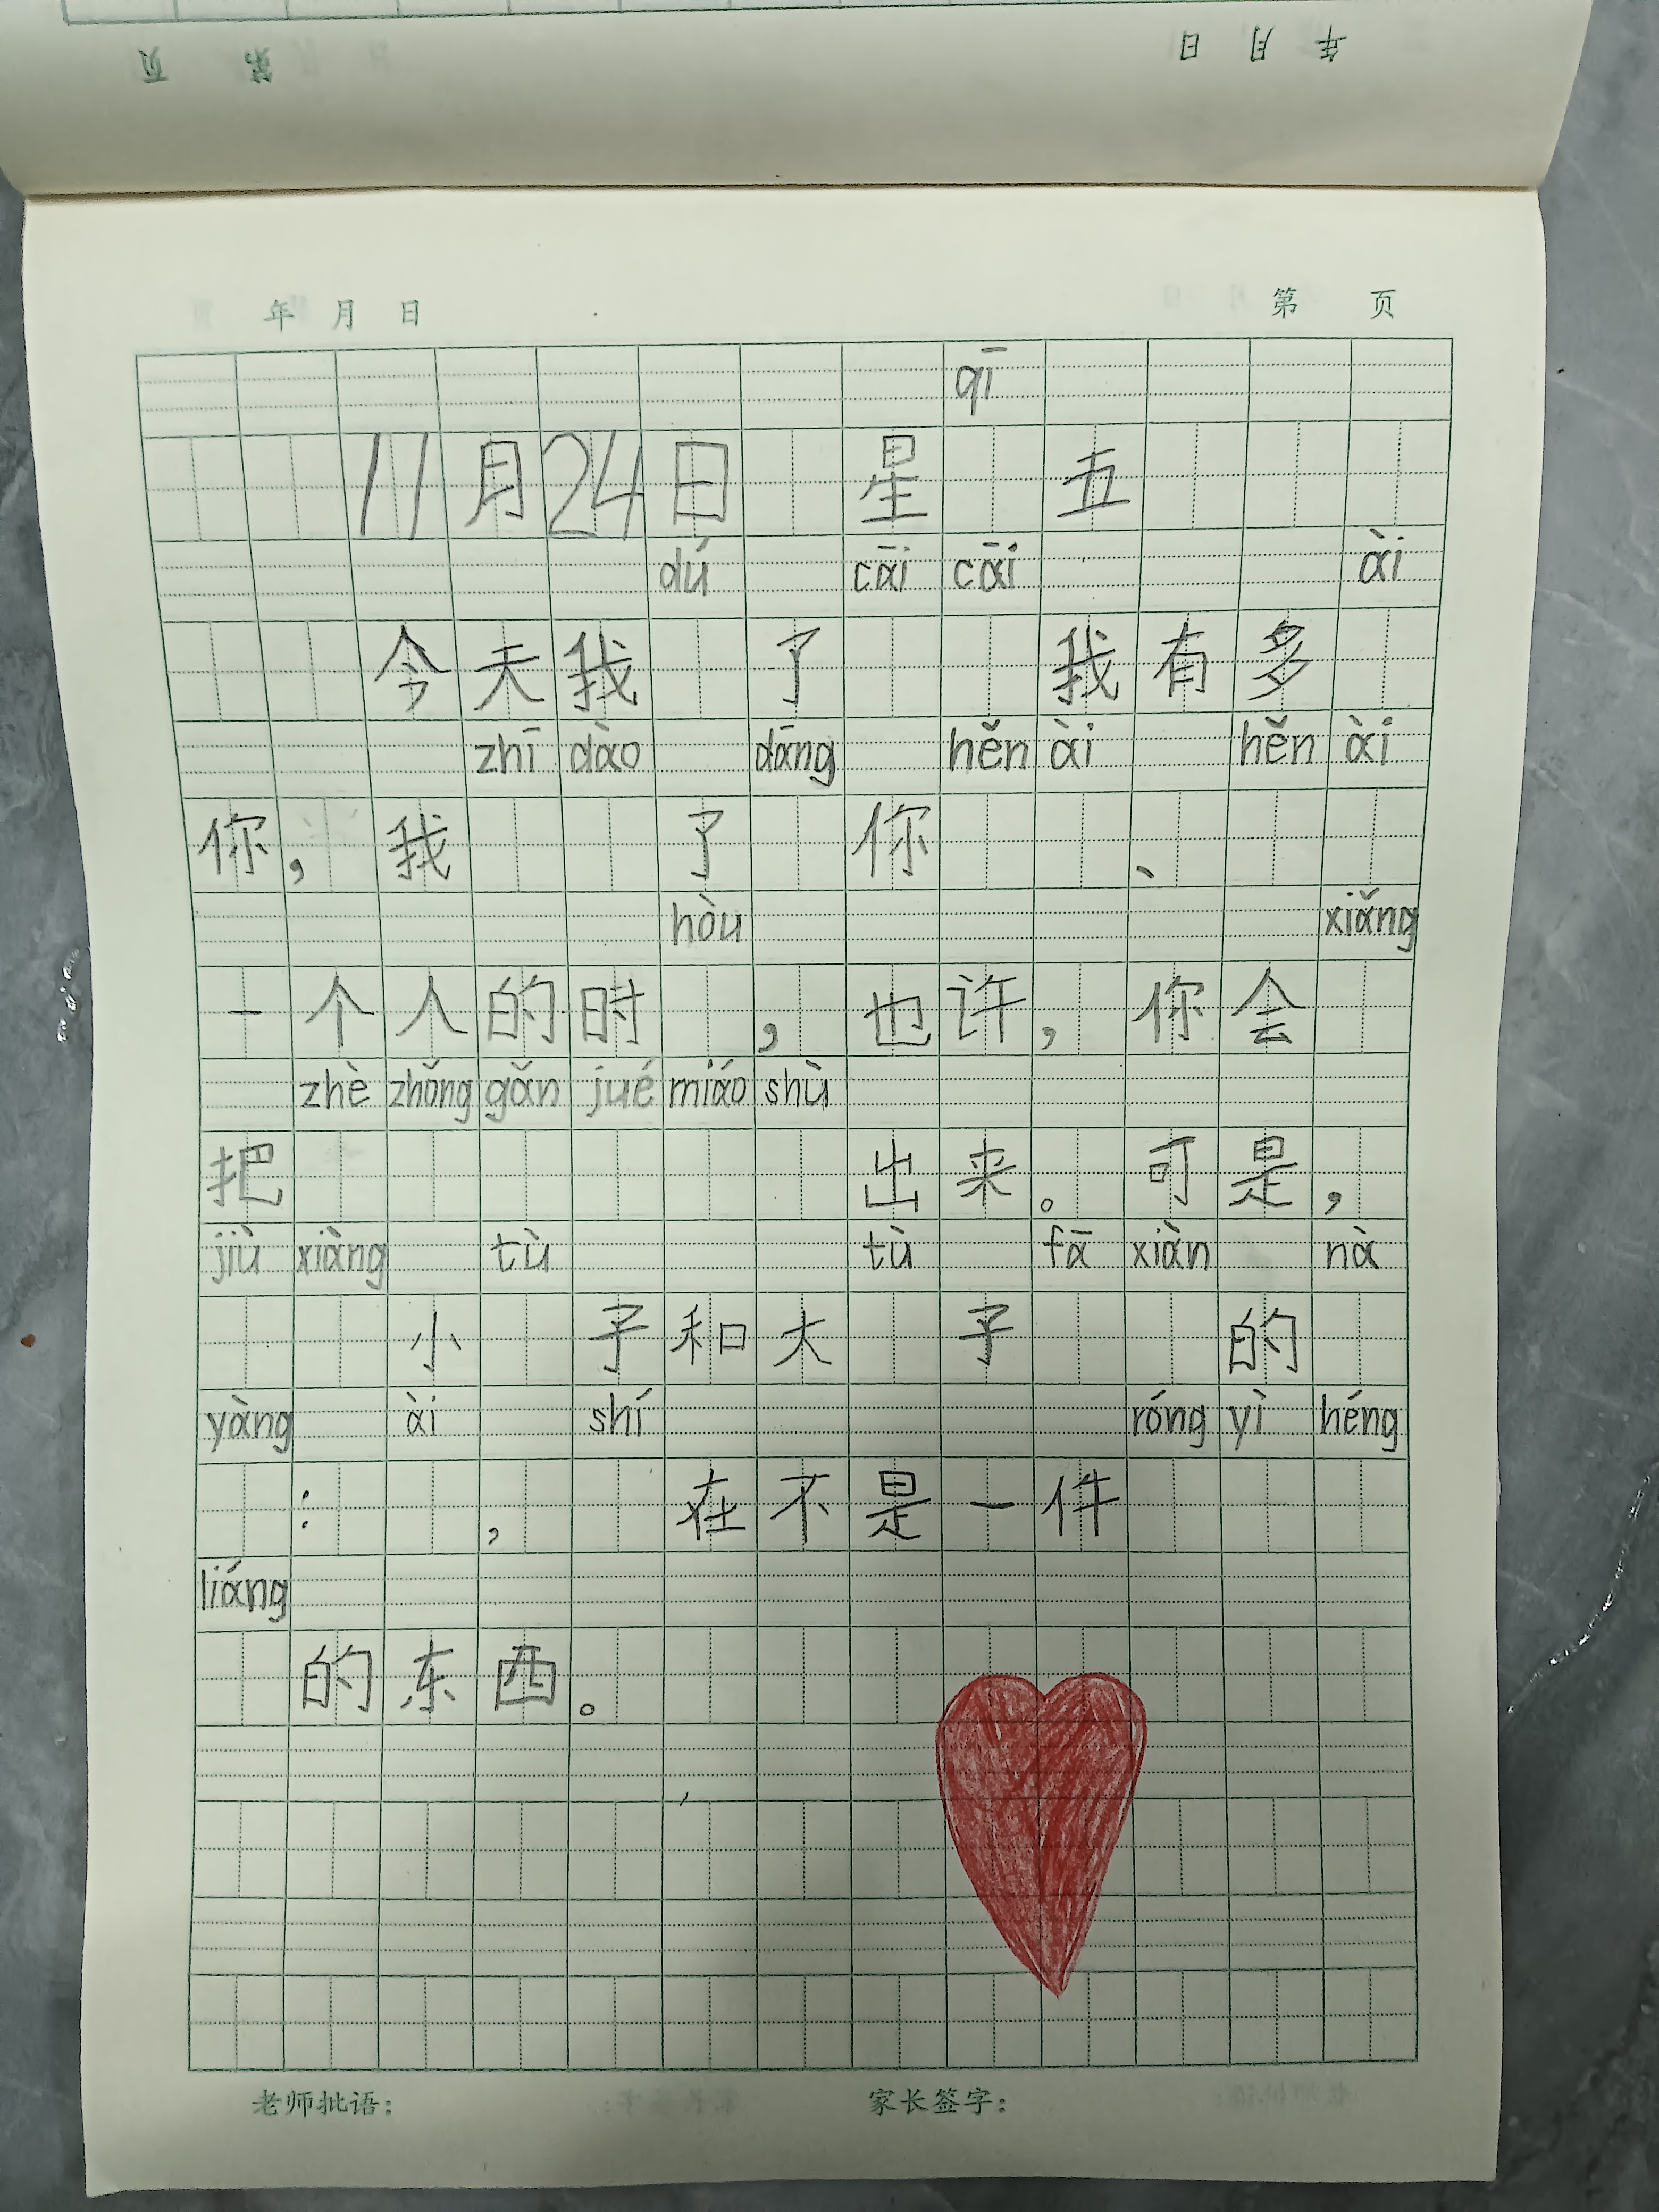 页 第 日 月 年
年 月 日 第 页
qī
11月24日 星 五
dú cāi cāi ài
今天我 了 我有多
zhī dào dāng hěn ài hěn ài
你，我 了 你 、
hòu xiǎng
一个人的时 ，也许，你会
zhè zhǒng gǎn jué miáo shù
把 出来。可是，
jiù xiàng tù tù fā xiàn nà
小 子和大 子 的
yàng ài shí róng yì héng
： ， 在不是一件
liáng
的东西。
老师批语： 家长签字：